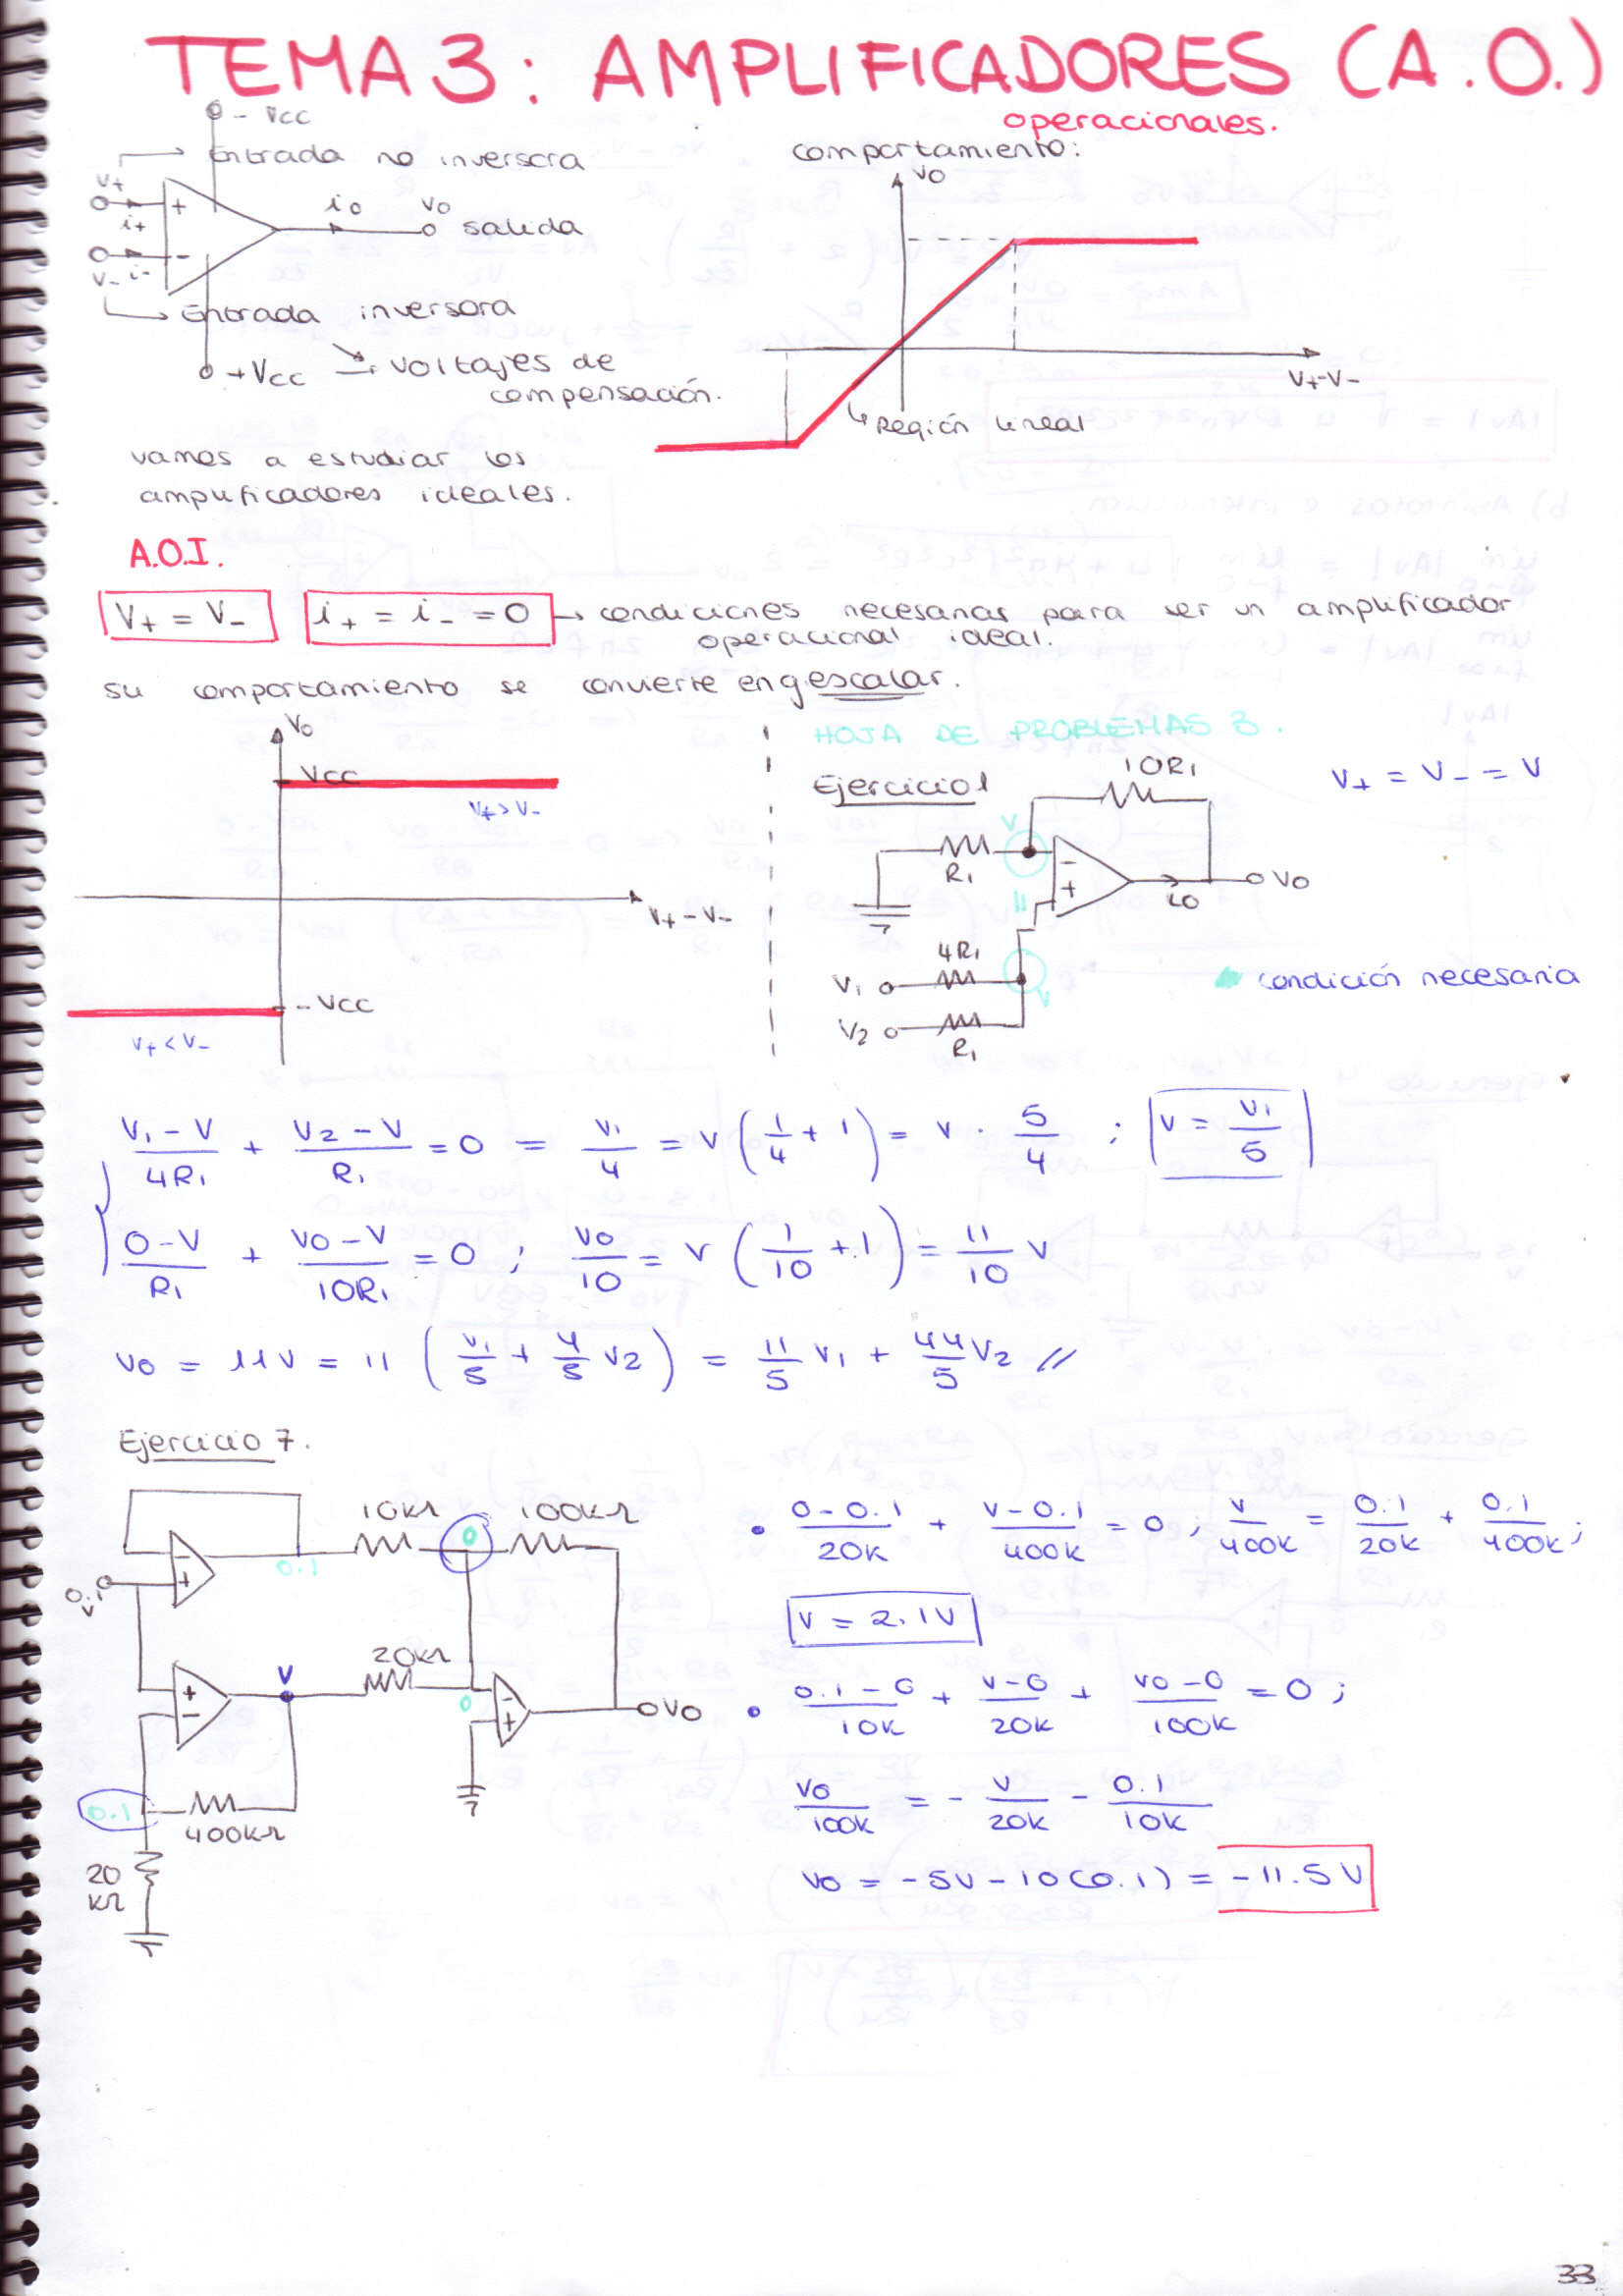 TEMA 3: AMPLIFICADORES (A.O.)
operacionales.
- Vcc
Entrada no inversora
V+
i+
+
i o
Vo
salida
-
V-
i-
Entrada inversora
+Vcc
voltajes de
compensación.
comportamiento:
Vo
V+-V-
Región lineal
vamos a estudiar los
amplificadores ideales.
A.O.I.
V+ = V-
i+ = i- = 0 → condiciones necesarias para ser un amplificador
operacional ideal.
su comportamiento se convierte en escalar.
Vo
Vcc
V+ > V-
V+ - V-
- Vcc
V+ < V-
HOJA DE PROBLEMAS 3.
Ejercicio 1
10R1
V+ = V- = V
V
R1
-
+
io
Vo
=
4R1
V1
V
V2
R1
condición necesaria
(V1-V)/4R1 + (V2-V)/R1 = 0 = V1/4 = V (1/4 + 1) = V · 5/4 ; V = V1/5
(0-V)/R1 + (Vo-V)/10R1 = 0 ; Vo/10 = V (1/10 + 1) = 11/10 V
Vo = 11V = 11 (V1/5 + 4/5 V2) = 11/5 V1 + 44/5 V2 //
Ejercicio 7.
10KΩ
0
100KΩ
-
+
0.1
0.1
V
V
20KΩ
+
-
0
-
+
Vo
0.1
400KΩ
20
KΩ
• (0-0.1)/20K + (V-0.1)/400K = 0 ; V/400K = 0.1/20K + 0.1/400K ;
V = 2.1V
• (0.1-0)/10K + (V-0)/20K + (Vo-0)/100K = 0 ;
Vo/100K = - V/20K - 0.1/10K
Vo = -5V - 10(0.1) = -11.5V
33